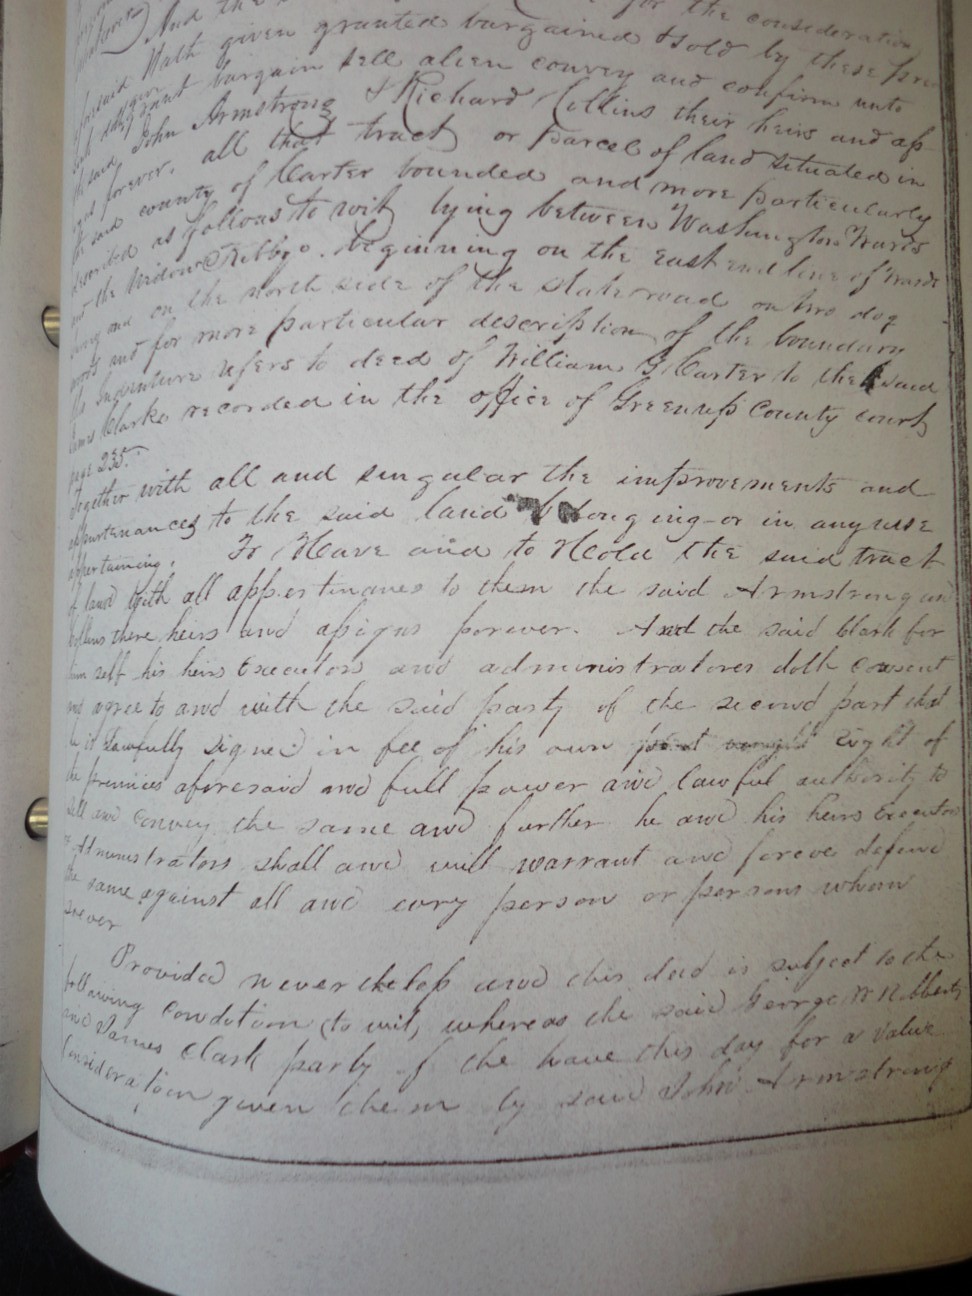 And the for the consideration
aforesaid Hath given granted bargained & sold by these pre
grant bargain sell alien convey and confirm unto
the said John Armstrong & Richard Collins their heirs and as
forever. all that tract or parcel of land situated in
the said county of Carter bounded and more particularly
described as follows to wit lying between Washington Wards
and the Widow Kibby. beginning on the east end line of Wards
on the north side of the state road on two dog
woods and for more particular description of the boundary
the Indenture refers to deed of William G Carter to the said
James Clarke recorded in the office of Greenup County court
page 235.
together with all and singular the improvements and
appurtenances to the said land belonging or in any wise
appertaining. To Have and to Hold the said tract
of land with all appertinances to them the said Armstrong and
Collins there heirs and assigns forever. And the said Clark for
him self his heirs Executors and administratores doth
and agree to and with the said party of the second part that
he is Lawfully signed in fee of his own right of
the premises aforesaid and full power and lawful authority to
sell and convey the same and further he and his heirs Executors
Administrators shall and will warrant and forever defend
the same against all and every person or persons whom
soever
Provided never theless and this deed is subject to the
following condition (to wit) whereas the said George W
and James Clark party of the have this day for a value
Consideration given them by said John Armstrong